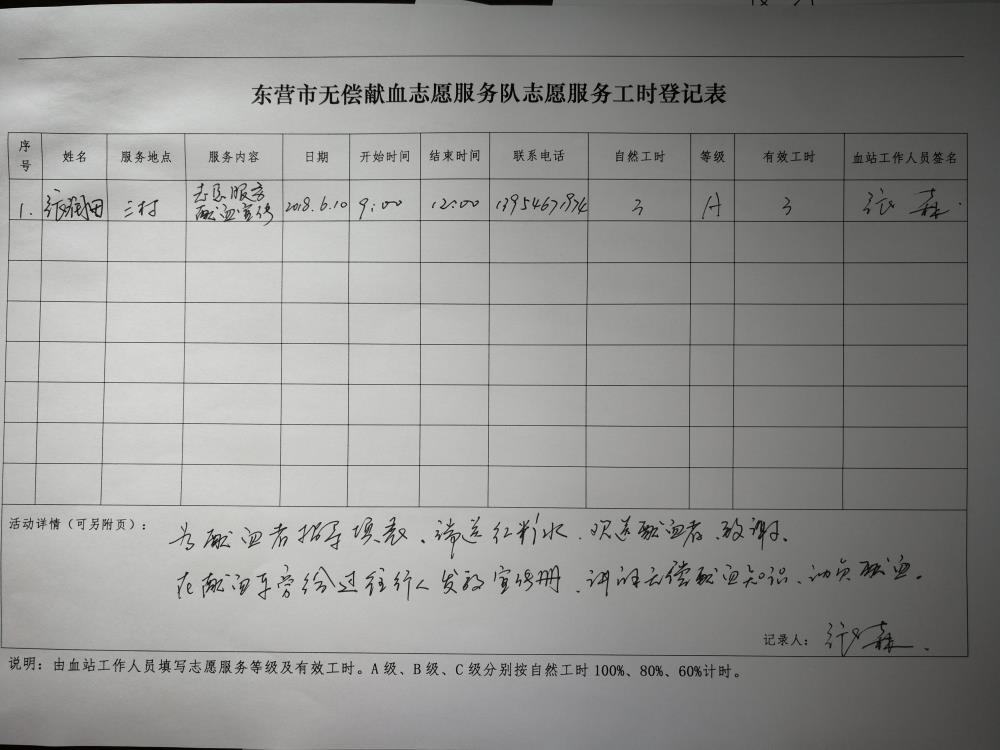 东营市无偿献血志愿服务队志愿服务工时登记表
序号 姓名 服务地点 服务内容 日期 开始时间 结束时间 联系电话 自然工时 等级 有效工时 血站工作人员签名
志愿服务
1. 张 田 三村 献血宣传 2018.6.10 9:00 12:00 3 A 3 张森
活动详情（可另附页）：
为献血者指导填表、端送红糖水、欢送献血者、致谢、
在献血车旁给过往行人发放宣传册、讲解无偿献血知识、动员献血。
记录人：张森.
说明：由血站工作人员填写志愿服务等级及有效工时。A级、B级、C级分别按自然工时100%、80%、60%计时。